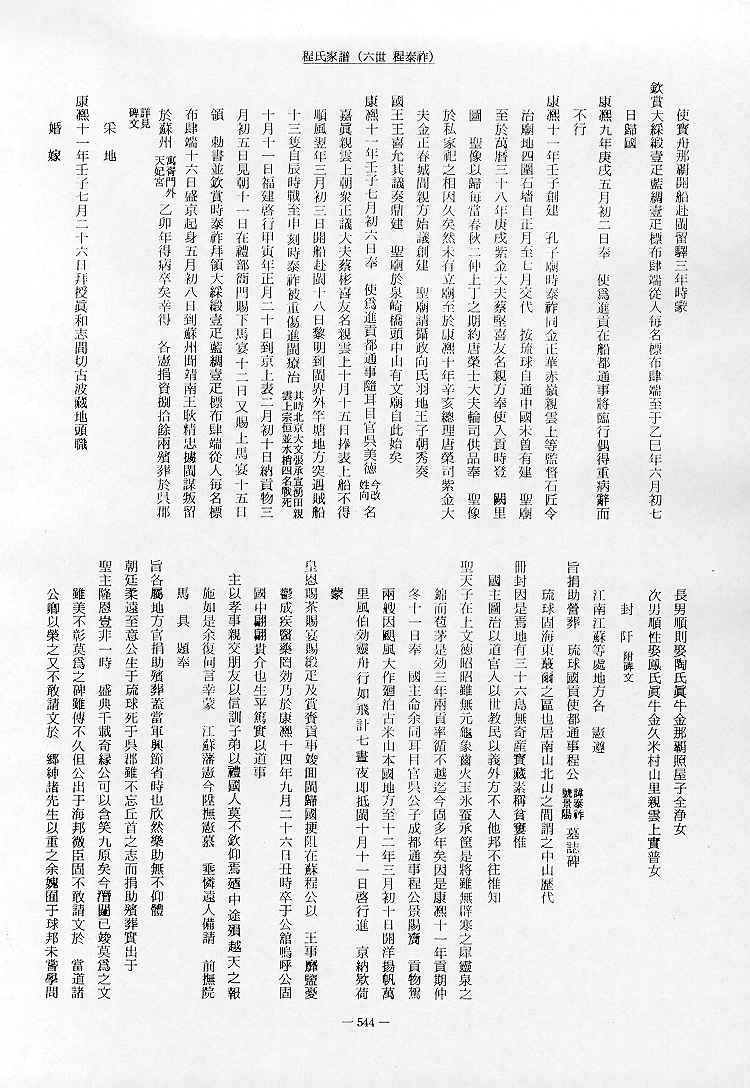 程氏家譜（六世 程泰祚）
使實舟那覇開船赴閩留驛三年時蒙
欽賞大綵緞壹疋藍綢壹疋標布肆端從人每名標布肆端至于乙巳年六月初七
日歸國
康熙九年庚戌五月初二日奉　使爲進貢在船都通事將臨行偶得重病辭而
不行
康熙十一年壬子創建　孔子廟時泰祚同金正華赤嶺親雲上等監督石匠令
治廟地四圍石墻自正月至七月交代　按琉球自通中國未曾有建　聖廟
至於萬曆三十八年庚戌紫金大夫蔡堅喜友名親方奉使入貢時登　闕里
圖　聖像以歸每當春秋二仲上丁之期約唐榮士大夫輪司供品奉　聖像
於私家祀之相因久矣然未有立廟至於康熙十年辛亥總理唐榮司紫金大
夫金正春城間親方始議創建　聖廟請攝政向氏羽地王子朝秀奏
國王王喜允其議奏鼎建　聖廟於泉崎橋頭中山有文廟自此始矣
康熙十一年壬子七月初六日奉　使爲進貢都通事隨耳目官吳美德今改姓向名
嘉眞親雲上朝衆正議大夫蔡彬喜友名親雲上十月十五日捧表上船不得
順風翌年三月初三日開船赴閩十八日黎明到閩界外竿塘地方突遇賊船
十三隻自辰時戰至申刻時泰祚被重傷進閩療治其時北京大文張承宣湧田親雲上宗恒並水梢四名戰死
十月十一日福建啓行甲寅年正月二十日到京上表二月初十日納貢物三
月初五日見朝十一日在禮部衙門賜下馬宴十二日又賜上馬宴十五日
領　勅書並欽賞時泰祚拜領大綵緞壹疋藍綢壹疋標布肆端從人每名標
布肆端十六日盛京起身五月初八日到蘇州聞靖南王耿精忠據閩謀叛留
於蘇州寓胥門外天妃宮乙卯年得病卒矣幸得　各憲捐資捌拾餘兩殯葬於吳郡
詳見碑文
采　地
康熙十一年壬子七月二十六日拜授眞和志間切古波藏地頭職
婚　嫁
長男順則娶陶氏眞牛金那覇照屋子全淨女
次男順性娶鳳氏眞牛金久米村山里親雲上實普女
封　阡　附碑文
江南江蘇等處地方各　憲遵
旨捐助營葬　琉球國貢使都通事程公諱泰祚號景陽墓誌碑
琉球固海東蕞爾之區也居南山北山之間謂之中山歷代
冊封因是焉地有三十六島無奇産寶藏素稱貧寠惟
國主圖治以道官人以世教民以義外方不入他邦不往惟知
聖天子在上文德昭昭雖無元龜象齒火玉氷蚕承筐是將雖無辟寒之犀靈泉之
錦而苞茅是効三年兩貢率循不越迄今固多年矣因是康熙十一年貢期仲
冬十一日奉　國主命余同耳目官吳公子成都通事程公景陽賫　貢物駕
兩艘因颶風大作廻泊古米山本國地方至十二年三月初十日開洋揚帆萬
里風伯効靈舟行如飛計七晝夜即抵閩十月十一日啓行進　京納欵荷
蒙
皇恩賜茶賜宴賜緞疋及賞賚貢事竣回閩歸國梗阻在蘇程公以　王事靡盬憂
鬱成疾醫藥罔効乃於康熙十四年九月二十六日丑時卒于公舘嗚呼公固
國中翩翩貴介也生平篤實以道事
主以孝事親交朋友以信訓子弟以禮國人莫不欽仰焉廼中途殞越天之報
施如是余復何言幸蒙　江蘇藩憲今陞撫憲慕　垂憐遠人備請　前撫院
馬　具　題奉
旨各屬地方官捐助殯葬蓋當軍興節省時也欣然樂助無不仰體
朝廷柔遠至意公生于琉球死于吳郡雖不忘丘首之志而捐助殯葬實出于
聖主隆恩豈非一時　盛典千載奇緣公可以含笑九原矣今窀穸已竣莫爲之文
雖美不彰莫爲之碑雖傳不久但公出于海邦微臣固不敢請文於　當道諸
公卿以榮之又不敢請文於　鄉紳諸先生以重之余媿囿于球邦未嘗學問
— 544 —